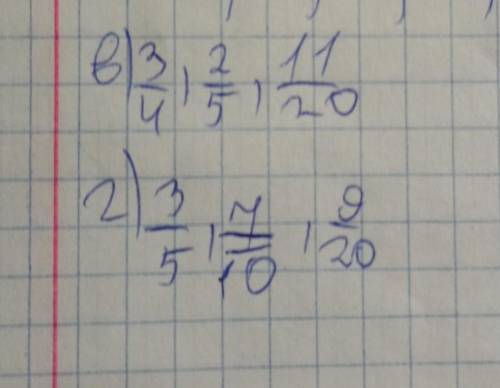 в) 3/4, 2/5, 11/20
г) 3/5, 7/10, 9/20